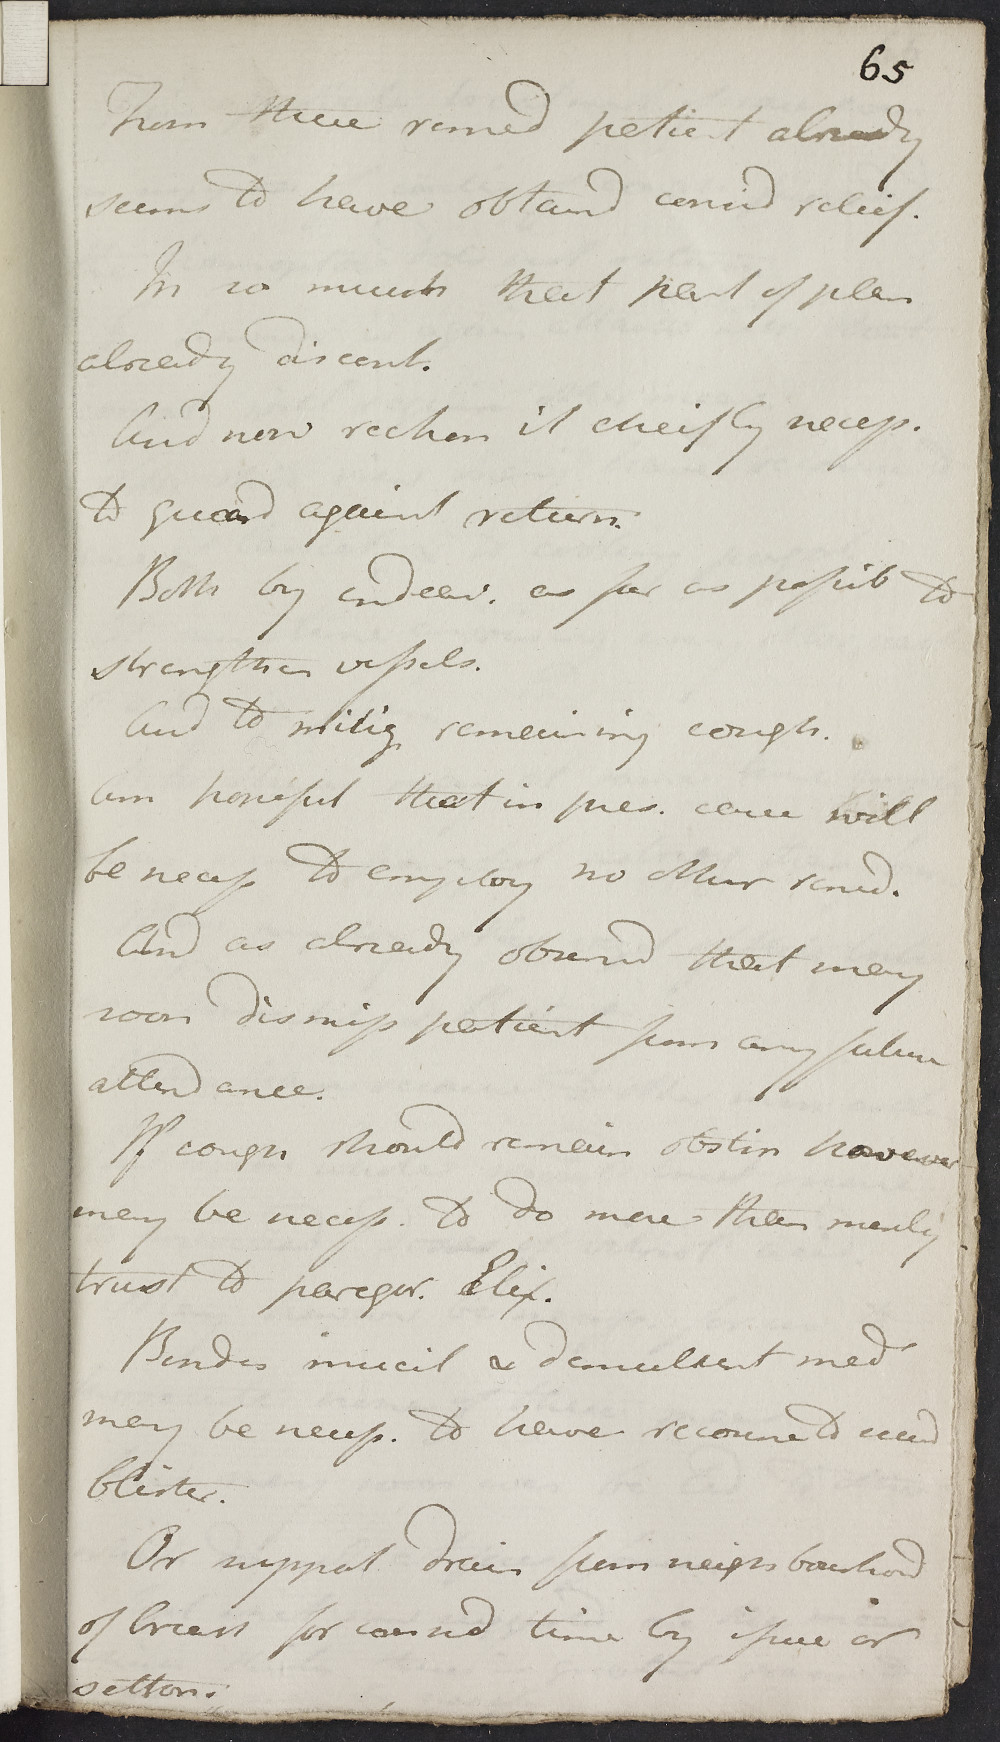 65
From these remed patient already
seems to have obtaind consid relief.
In so much that part of plan
already discont.
And now reckon it cheifly necess.
to guard against return.
Both by endeav. as far as possib to
strengthen vessels.
And to mitig remaining cough.
Am hopeful that in pres. case will
be necess to employ no other remed.
And as already observd that may
soon dismiss patient from any future
attendance.
If cough should remain obstin however
may be necess. to do more than merely
trust to paregor. Elix.
Besides mucil & demulcent med
may be necess. to have recourse to
blister.
Or support drain from neighbourhood
of breast for consid time by issue or
setton.